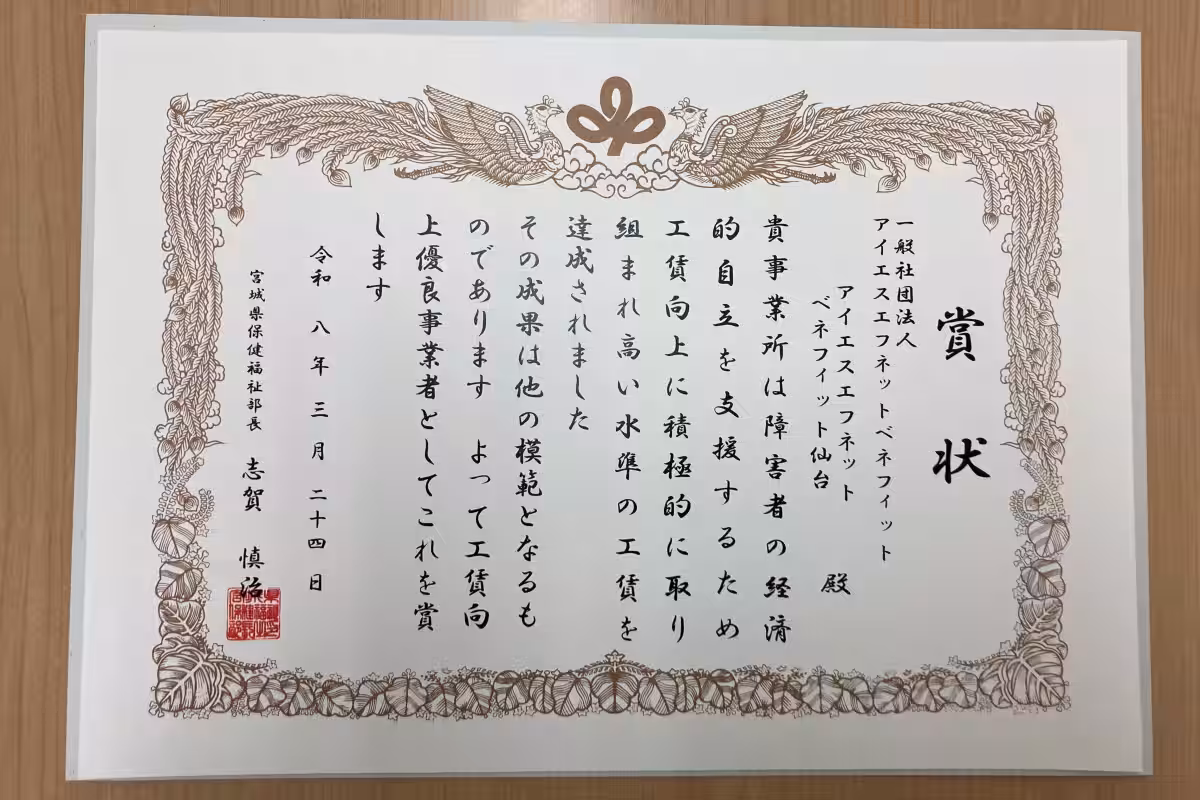 賞状
一般社団法人
アイエスエフネットベネフィット
アイエスエフネット
ベネフィット仙台 殿
貴事業所は障害者の経済
的自立を支援するため
工賃向上に積極的に取り
組まれ高い水準の工賃を
達成されました
その成果は他の模範となるも
のであります よって工賃向
上優良事業者としてこれを賞
します
令和 八年 三月 二十四日
宮城県保健福祉部長 志賀 慎治